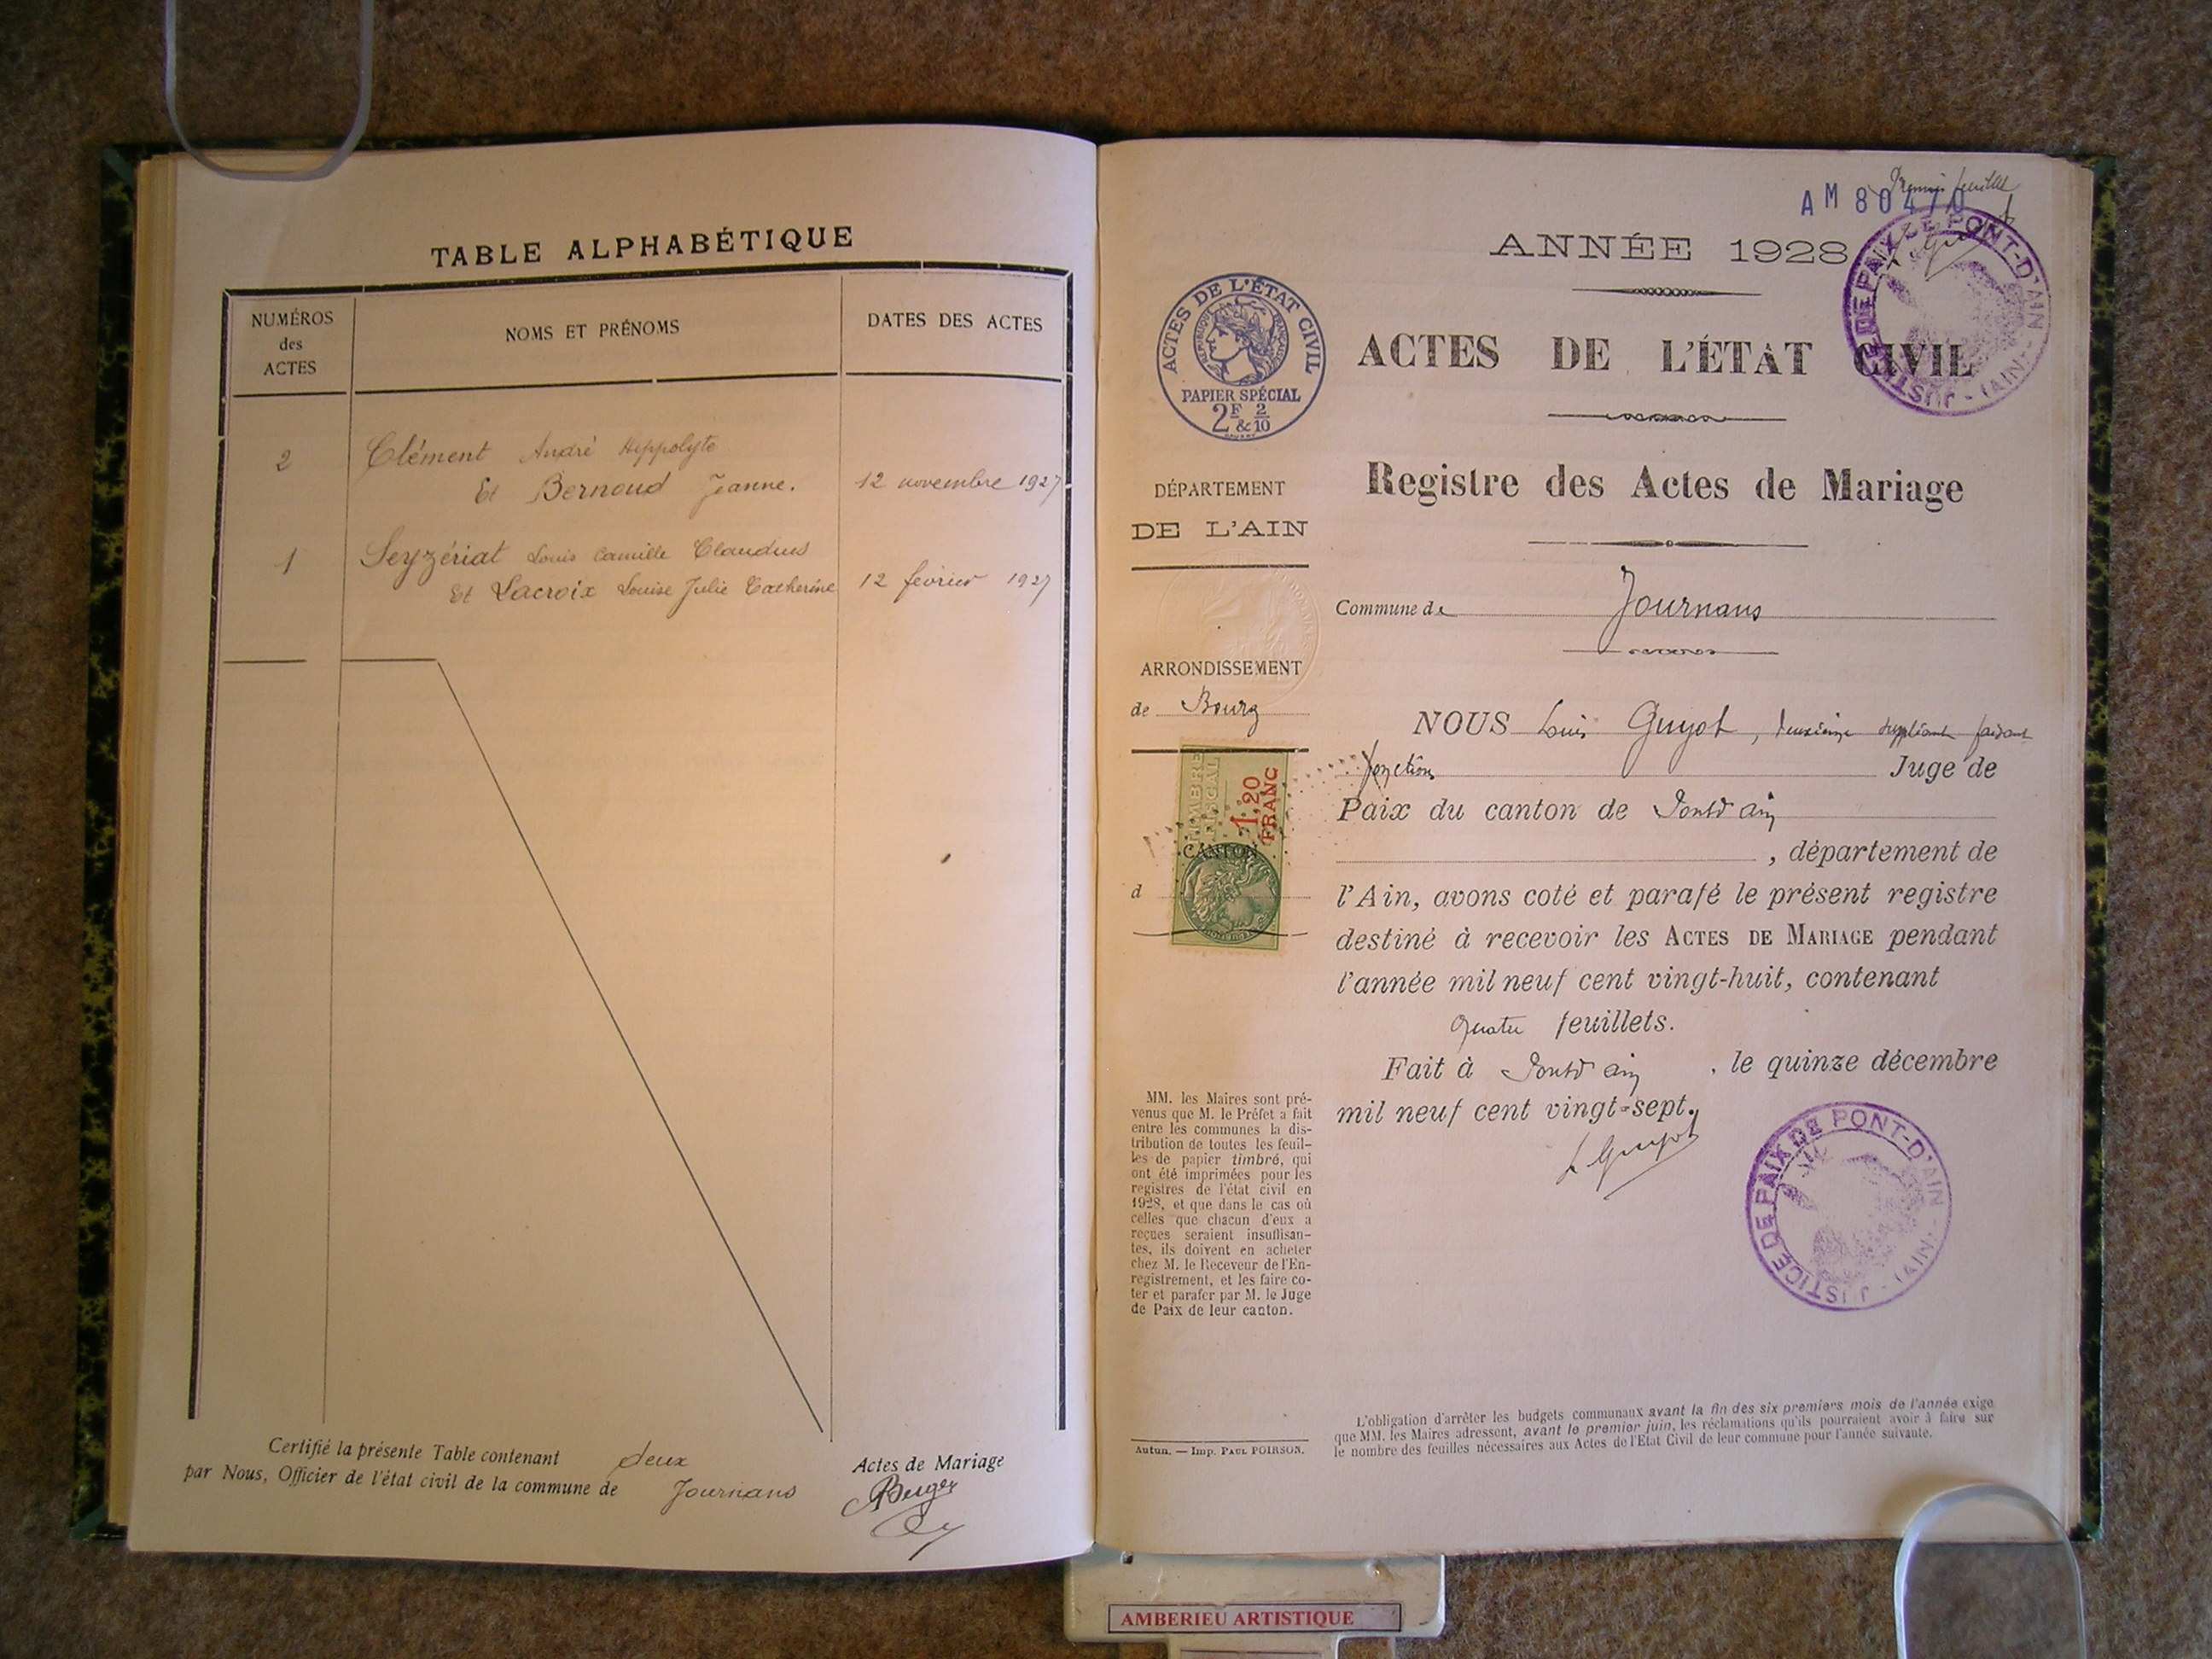 TABLE ALPHABÉTIQUE
NUMÉROS
des
ACTES
NOMS ET PRÉNOMS
DATES DES ACTES
2
Clément André Hippolyte
Et Bernoud Jeanne.
12 novembre 1927
1
Seyzériat Louis Camille Claudius
Et Lacroix Louise Julie Catherine
12 février 1927
Certifié la présente Table contenant deux Actes de Mariage
par Nous, Officier de l'état civil de la commune de Journans
AM 80470
Premier feuillet
ANNÉE 1928
JUSTICE DE PAIX DE PONT-D'AIN - (AIN) -
ACTES DE L'ÉTAT CIVIL
RÉPUBLIQUE FRANÇAISE
PAPIER SPÉCIAL
2F & 2/10
ACTES DE L'ÉTAT CIVIL
Registre des Actes de Mariage
DÉPARTEMENT
DE L'AIN
Commune de Journans
ARRONDISSEMENT
de Bourg
TIMBRE
FISCAL
1,20
FRANC
CANTON
d
NOUS Louis Guyot, deuxième suppléant faisant
fonction Juge de
Paix du canton de Pont d'Ain
, département de
l'Ain, avons coté et parafé le présent registre
destiné à recevoir les ACTES DE MARIAGE pendant
l'année mil neuf cent vingt-huit, contenant
quatre feuillets.
Fait à Pont d'Ain, le quinze décembre
mil neuf cent vingt-sept.
L Guyot
JUSTICE DE PAIX DE PONT-D'AIN - (AIN) -
MM. les Maires sont pré-
venus que M. le Préfet a fait
entre les communes la dis-
tribution de toutes les feuil-
les de papier timbré, qui
ont été imprimées pour les
registres de l'état civil en
1928, et que dans le cas où
celles que chacun d'eux a
reçues seraient insuffisan-
tes, ils doivent en acheter
chez M. le Receveur de l'En-
registrement, et les faire co-
ter et parafer par M. le Juge
de Paix de leur canton.
Autun. — Imp. PAUL POIRSON.
L'obligation d'arrêter les budgets communaux avant la fin des six premiers mois de l'année exige
que MM. les Maires adressent, avant le premier juin, les réclamations qu'ils pourraient avoir à faire sur
le nombre des feuilles nécessaires aux Actes de l'Etat Civil de leur commune pour l'année suivante.
AMBERIEU ARTISTIQUE